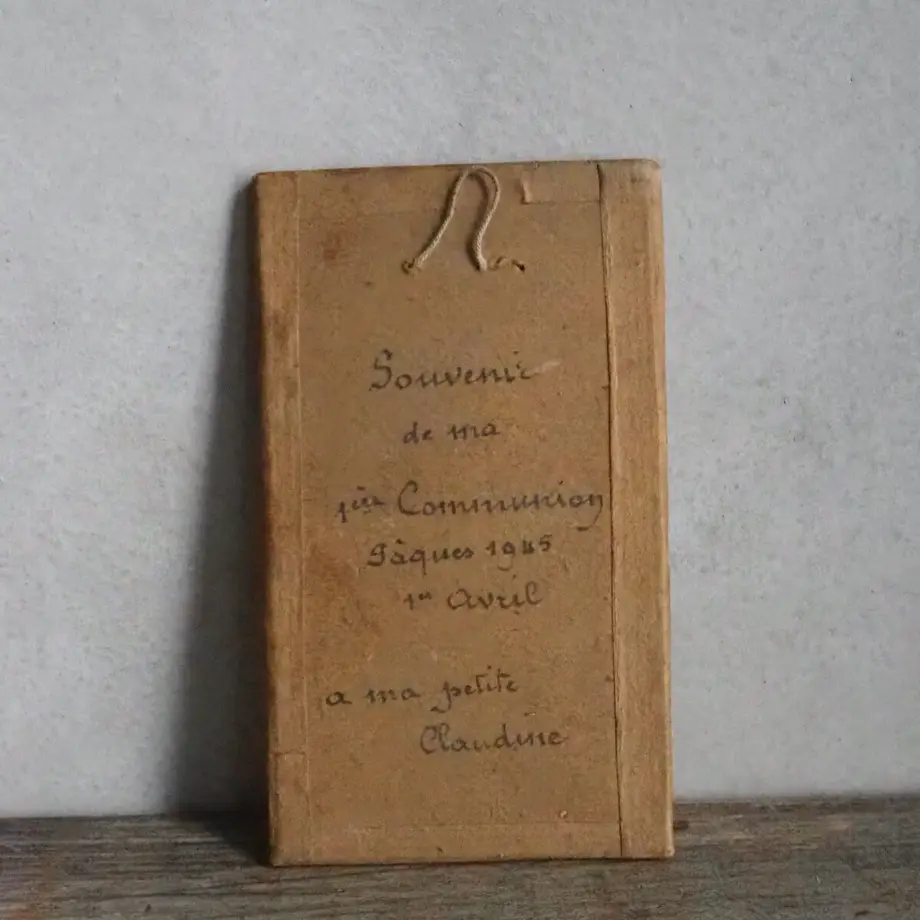 Souvenir
de ma
1ère Communion
Pâques 1945
1er Avril
a ma petite
Claudine